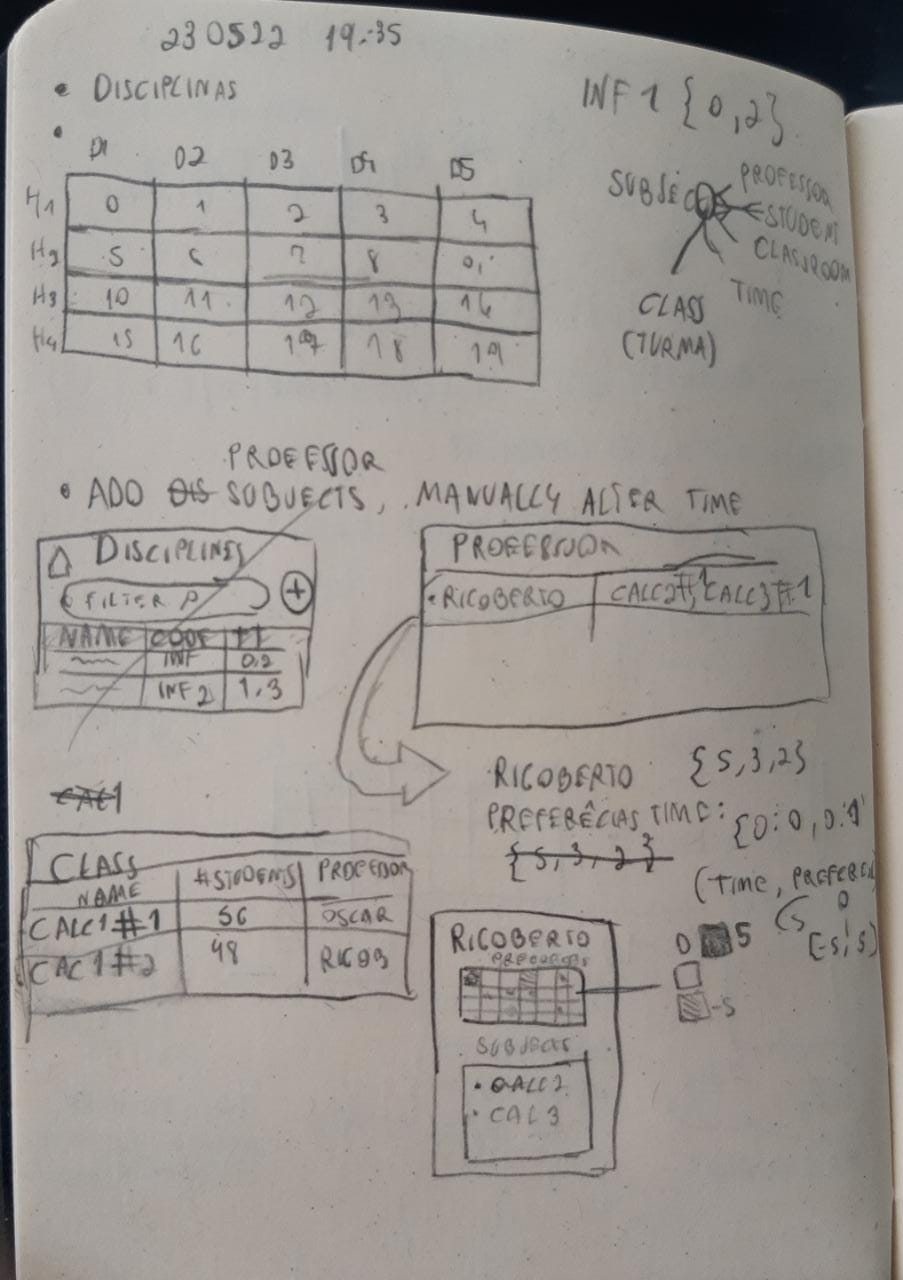 230522 19:35
• DISCIPLINAS
INF 1 {0,2}
•
D1 D2 D3 D4 D5
H1 0 1 2 3 4
H2 5 6 7 8 9
H3 10 11 12 13 14
H4 15 16 17 18 19
SUBJEC
PROFESSOR
STUDENT
CLASSROOM
TIME
CLASS
(TURMA)
PROFESSOR
• ADD DIS SUBJECTS, MANUALLY ALTER TIME
DISCIPLINES
FILTER
+
NAME CODE TT
INF 0,2
INF 2 1,3
PROFESSOR
• RIGOBERTO CALC2#1, CALC3#1
RIGOBERTO {5,3,2}
PREFERÊCIAS TIME: {0:0, 0:1
{5,3,2}
(TIME, PREFEREN
(5 0
[-5,5)
CAC1
CLASS
NAME #STUDENTS PROFESSOR
CALC1#1 56 OSCAR
CAC1#2 48 RIGOB
RIGOBERTO
0 5
-5
SUBJECTS
• CALC2
• CAL3